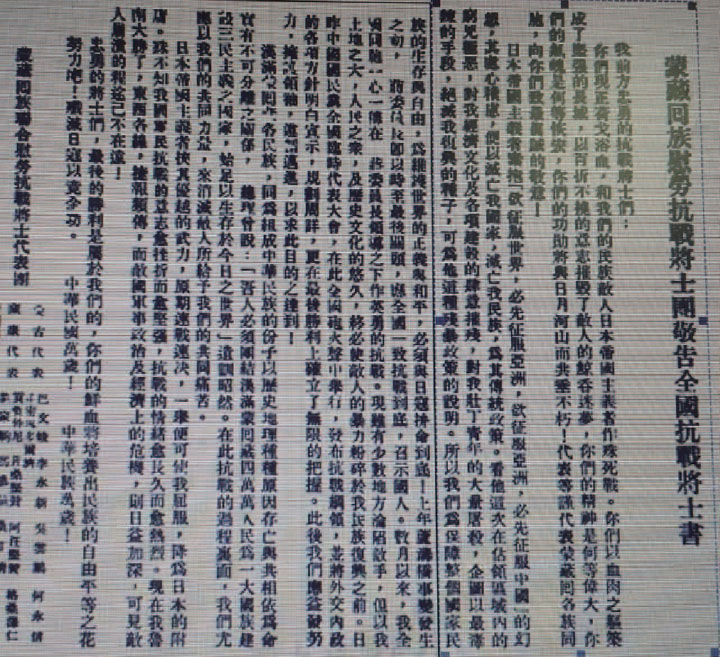 蒙藏回族慰勞抗戰將士團敬告全國抗戰將士書
我前方忠勇的抗戰將士們：
你們現正荷戈浴血，和我們的民族敵人日本帝國主義者作殊死戰。你們以血肉之軀築
成了堅强的長城，以百折不撓的意志摧毀了敵人的鯨吞迷夢，你們的精神是何等偉大，你
們的氣魄是何等俠宏，你們的功勛將與日月河山而共垂不朽！代表等謹代表蒙藏回各族同
胞，向你們致最眞誠的敬意！
日本帝國主義者秉抱「欲征服世界，必先征服亞洲，欲征服亞洲，必先征服中國」的幻
想，其處心積慮，便以滅亡我國家，滅亡我民族，爲其傳統政策。看他這次在佔領區域內的
窮兇極惡，對我經濟文化及各項建設的肆意摧殘，對我壯丁青年的大量屠殺，企圖以最毒
辣的手段，絕滅我復興的種子，可爲他這種殘暴政策的說明。所以我們爲保障整個國家民
族的生存與自由，爲維護世界的正義與和平，必須與日寇拚命到底！上年蘆溝橋事變發生
之初，蔣委員長即以時至最後關頭，應全國一致抗戰到底，召示國人。數月以來，我全
國同胞一心一德在 蔣委員長領導之下作英勇的抗戰。現雖有少數地方淪陷敵手，但以我
土地之大，人民之衆，及歷史文化的悠久，終必使敵人的暴力粉碎於我民族復興之前。日
昨中國國民黨全國臨時代表大會，在此全國砲火聲中舉行，發布抗戰綱領，並將外交內政
的各項方針明白宣示，規劃周詳，更在最後勝利上確立了無限的把握。此後我們應益發努
力，擁護領袖，邁進，以求此目的之達到！
漢滿蒙回藏各民族，同爲組成中華民族的份子以歷史地理種種原因存亡與共相依爲命
實有不可分離之關係， 總理曾說：「吾人必須團結漢滿蒙回藏四萬萬人民爲一大國族建
設三民主義之國家，始足以生存於今日之世界」遺訓昭然。在此抗戰的過程裏面，我們尤
應以我們的共同力量，來消滅敵人所給予我們的共同痛苦。
日本帝國主義者挾其優越的武力，原期速戰速決，一舉便可使我屈服，降爲日本的附
庸。殊不知我國軍民抗戰的意志愈挫折而愈堅强，抗戰的情緒愈長久而愈熱烈。現在我魯
南大勝了，東西各綫，捷報頻傳，而敵國軍事政治及經濟上的危機，則日益加深，可見敵
人崩潰的程途已不在遠！
忠勇的將士們，最後的勝利是屬於我們的，你們的鮮血將培養出民族的自由平等之花
努力吧！殲滅日寇以竟全功。 中華民國萬歲！ 中華民族萬歲！
蒙藏回族聯合慰勞抗戰將士代表團
蒙古代表 巴文峻 李永新 吳雲鵬 何永信
藏族代表